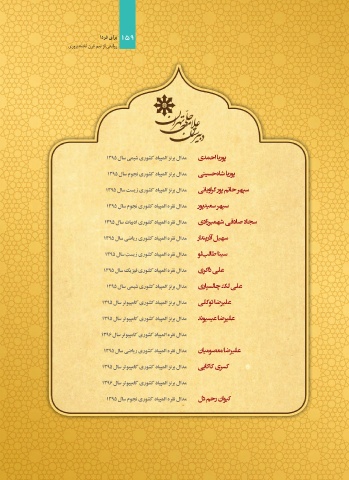 ۱۵۹
برای فردا
روایتی از نیم قرن نخبه‌پروری
دبیرستان علامه حلی تهران
پویا احمدی مدال برنز المپیاد کشوری شیمی سال ۱۳۹۵
پویا شاه‌حسینی مدال برنز المپیاد کشوری نجوم سال ۱۳۹۵
سپهر حاتم پور کراچانی مدال برنز المپیاد کشوری زیست سال ۱۳۹۵
سپهر سعیدپور مدال نقره المپیاد کشوری نجوم سال ۱۳۹۵
سجاد صادقی شهمیرزادی مدال نقره المپیاد کشوری ادبیات سال ۱۳۹۵
سهیل آذرپندار مدال نقره المپیاد کشوری ریاضی سال ۱۳۹۵
سینا طالب‌لو مدال نقره المپیاد کشوری زیست سال ۱۳۹۵
علی ذاکری مدال نقره المپیاد کشوری فیزیک سال ۱۳۹۵
علی لک چالسپاری مدال برنز المپیاد کشوری شیمی سال ۱۳۹۵
علیرضا توکلی مدال برنز المپیاد کشوری کامپیوتر سال ۱۳۹۵
علیرضا عیسیوند مدال برنز المپیاد کشوری کامپیوتر سال ۱۳۹۵
مدال نقره المپیاد کشوری کامپیوتر سال ۱۳۹۶
علیرضا معصومیان مدال برنز المپیاد کشوری ریاضی سال ۱۳۹۵
کسری کاکایی مدال برنز المپیاد کشوری کامپیوتر سال ۱۳۹۵
مدال برنز المپیاد کشوری کامپیوتر سال ۱۳۹۶
کیوان رحیم دل مدال نقره المپیاد کشوری نجوم سال ۱۳۹۵